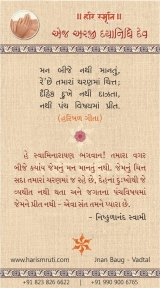 ॥ हरि स्मृति ॥
એજ અરજી દયાનિધિ દેવ
મન બીજે નથી માનતું,
રે'છે તમારાં ચરણમાં ચિત્ત;
દૈહિક દુઃખે નથી દાઝતા,
નથી પંચ વિષયમાં પ્રીત.
(હરિબળ ગીતા)
હે સ્વામિનારાયણ ભગવાન! તમારા વગર
બીજે ક્યાંય જેમનું મન માનતું નથી. જેમનું ચિત્ત
સદા તમારાં ચરણમાં જ રહે છે, દેહનાં દુઃખોથી જે
વ્યથીત નથી થતા અને જગતના પંચવિષયમાં
જેમને પ્રીત નથી - એવા સંત અમને પ્યારા છે.
- નિષ્કુળાનંદ સ્વામી
www.harismruti.com
Jnan Baug - Vadtal
+91 823 826 6622
+91 990 900 6765